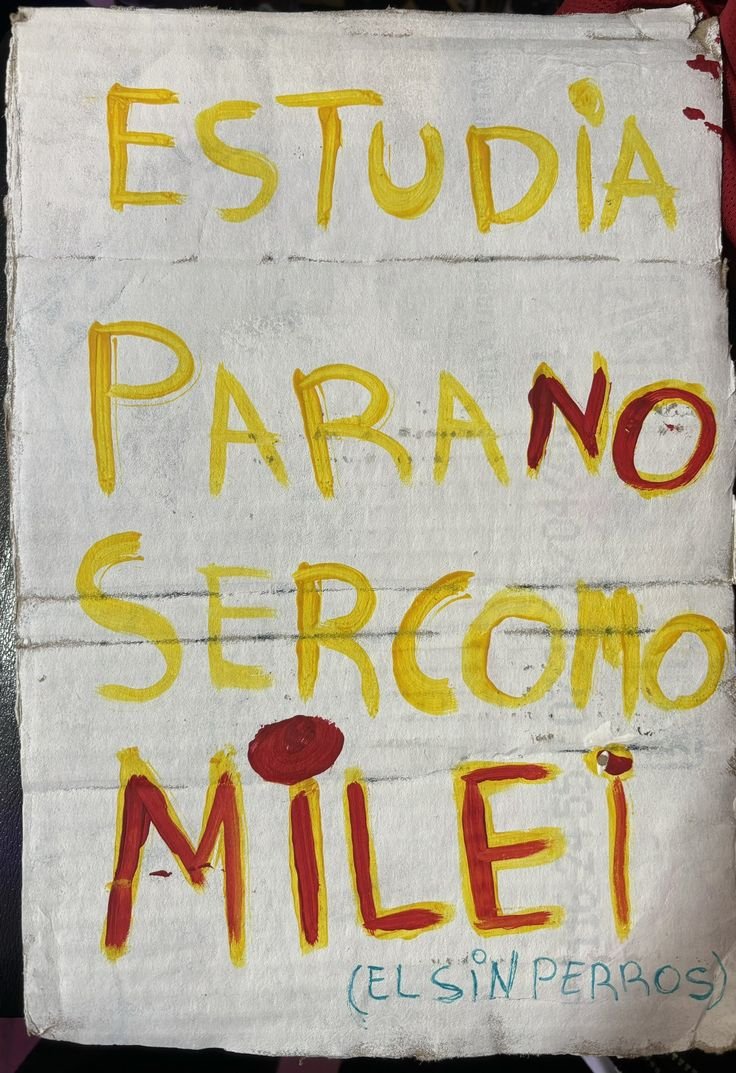 ESTUDiA
PARA NO
SER COMO
MiLEi
(EL SiN PERROS)